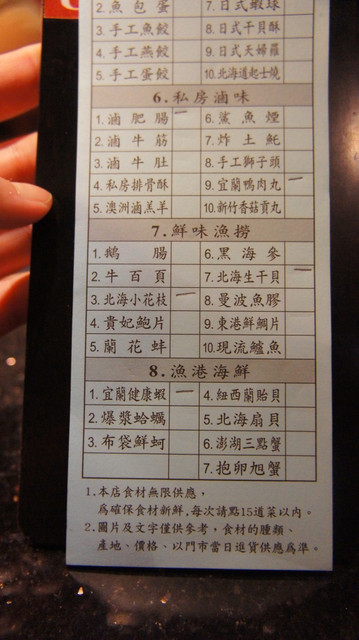 2. 魚包蛋 7. 日式蝦球
3. 手工魚餃 8. 日式干貝酥
4. 手工燕餃 9. 日式天婦羅
5. 手工蛋餃 10. 北海道起士燒
6. 私房滷味
1. 滷肥腸 6. 鯊魚煙
2. 滷牛筋 7. 炸土魠
3. 滷牛肚 8. 手工獅子頭
4. 私房排骨酥 9. 宜蘭鴨肉丸
5. 澳洲滷羔羊 10. 新竹香菇貢丸
7. 鮮味漁撈
1. 鵝腸 6. 黑海參
2. 牛百頁 7. 北海生干貝
3. 北海小花枝 8. 曼波魚膠
4. 貴妃鮑片 9. 東港鮮鯛片
5. 蘭花蚌 10. 現流鱸魚
8. 漁港海鮮
1. 宜蘭健康蝦 4. 紐西蘭貽貝
2. 爆漿蛤蠣 5. 北海扇貝
3. 布袋鮮蚵 6. 澎湖三點蟹
7. 抱卵旭蟹
1. 本店食材無限供應，
為確保食材新鮮,每次請點15道菜以內。
2. 圖片及文字僅供參考，食材的種類、
產地、價格、以門市當日進貨供應為準。